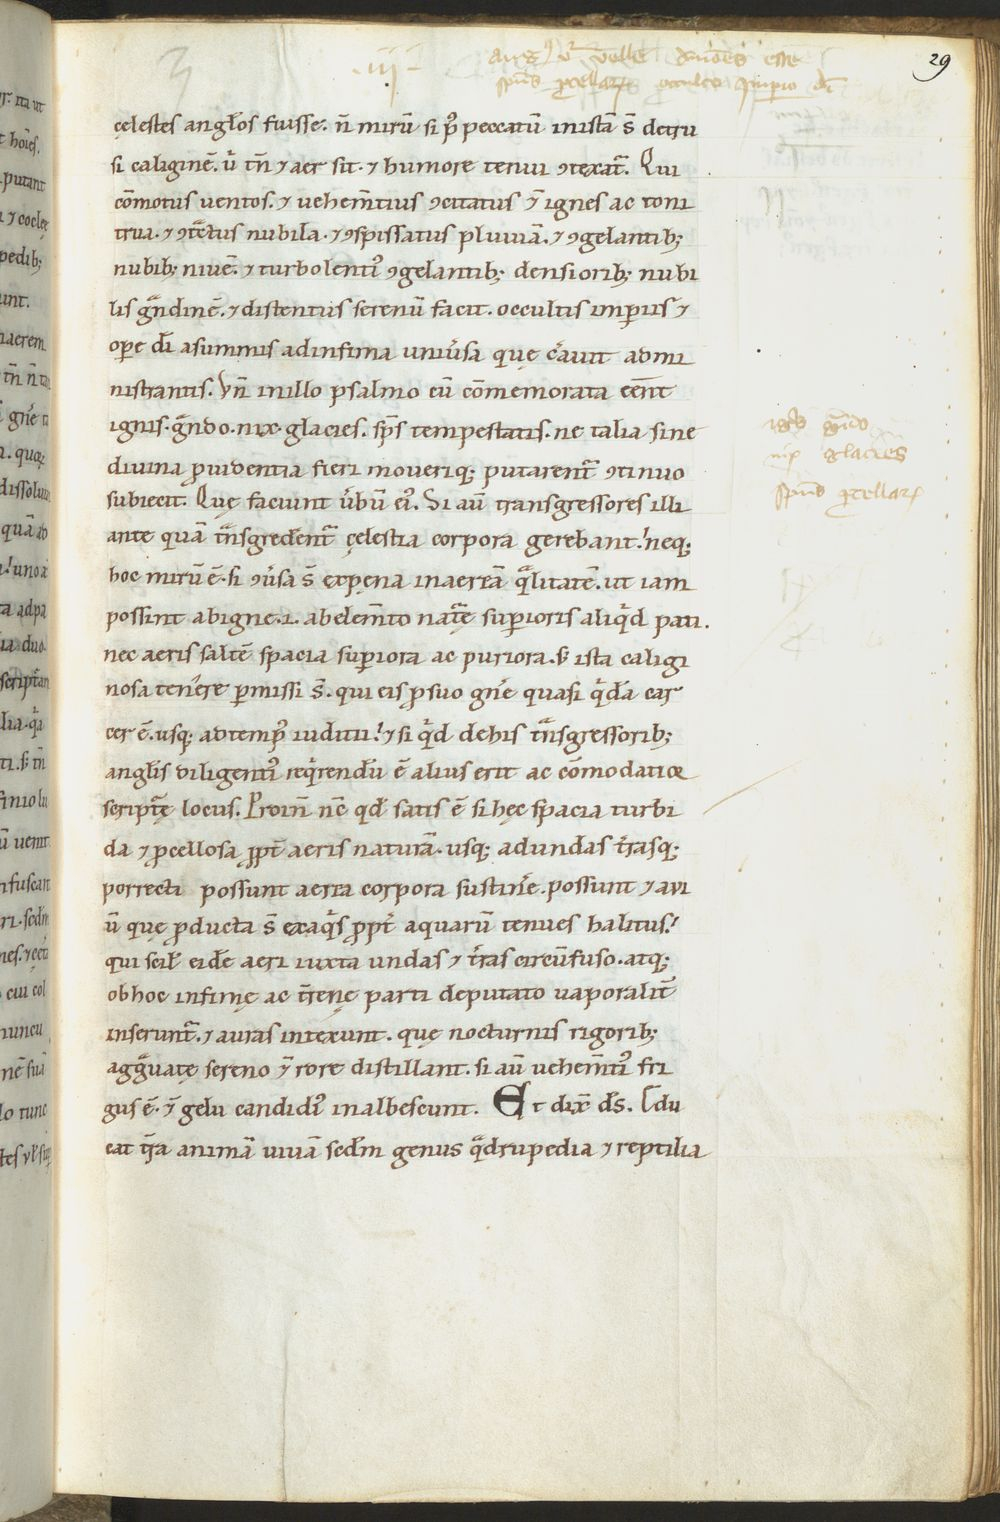 29
.iij.
cęlestes angl̃os fuisse. n̄ mirũ si p̃ peccatũ inistã s̃ detru
si caliginẽ. ũ tñ ⁊ aer sit. ⁊ humore tenui ꝯtexat̃. Qui
cõmotus uentos. ⁊ uehem̃tius ꝯcitatus ⁊̃ ignes ac toni
trua. ⁊ ꝯtᵃctus nubila. ⁊ ꝯspissatus pluuiã. ⁊ ꝯgelantib;
nubib; niuẽ. ⁊ turbolenti᷒ ꝯgelantib; densiorib; nubi
lis gᵃndinẽ. ⁊ distentus serenũ facit. occultis inꝑiis ⁊
oꝑe dı̃ asummis adinfima uniũsa quę c̃auit admi
nistrantis. Vñ inillo psalmo cũ cõmemorata eẽnt
ignis. gᵃndo. nix. glacies. sp̃s tempestatis. ne talia sine
diuina ꝓuidentia fieri mouerıq; putarent̃ ꝯtinuo
subiecit. Quę faciunt ũbũ ei᷒. Si aũ transgressores illi
ante quã tᵃnsgredẽnt̃ cęlestia corpora gerebant. neq;
hoc mirũ ẽ. si ꝯũsa s̃ expęna inaereã qᵃlitatẽ. ut iam
possint abigne .i. abelem̃to nat̃ę suꝑioris aliqͥd pati.
nec aeris saltẽ spacia suꝑiora ac puriora. s; ista caligi
nosa ten̾e ꝑmissi s̃. qui eis ꝓsuo gñe quasi qͥdã car
cer ẽ. usq; adtemp᷒ iuditii. ⁊ si qͥd dehis tᵃnsgressorib;
angl̃is diligenti᷒ reqͥrendũ ẽ alius erit ac cõmodatior
script̃ę locus. Proiñ nc̃ qd̃ satis ẽ si hęc spacia turbi
da ⁊ ꝓcellosa ꝓpt̃ aeris naturã. usq; adundas t̃rasq;
porrecti possunt aeria corpora sustiñe. possunt ⁊ aui
ũ quę ꝓducta s̃ exaqͥs ꝓpt̃ aquarũ tenues halitus.
qui scil̃ eidẽ aeri iuxta undas ⁊ t̃ras circũfuso. atq;
obhoc infimę ac t̃renę parti deputato uaporalit̃
inserunt̃. ⁊ auras intexunt. quę nocturnis rigorib;
aggᵃuatę sereno ⁊̃ rore distillant. si aũ uehem̃ti᷒ fri
gus ẽ. ⁊̃ gelu candidi᷒ inalbescunt. Et dix̃ ds̃. Edu
cat t̃ra animã uiuã sedm̃ genus qᵃdrupedia ⁊ reptilia
glacies